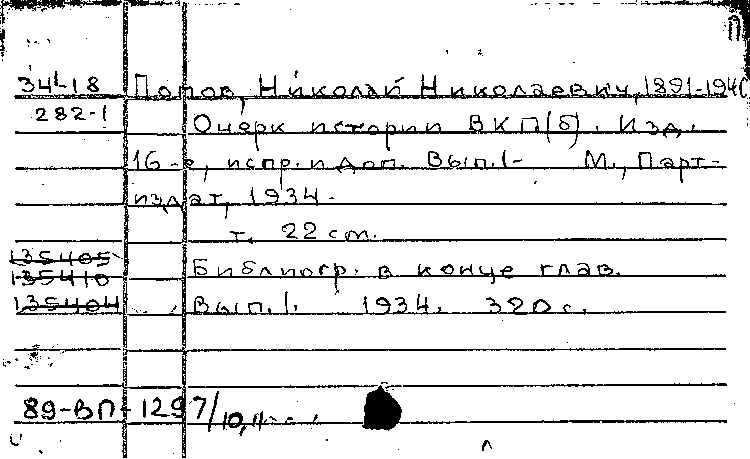 П
34-18 Попов, Николай Николаевич, 1891-1940
282-1 Очерк истории ВКП(б). Изд.
16-е, испр. и доп. Вып. 1- М., Парт-
издат, 1934.
т. 22 см.
135405
135410 Библиогр. в конце глав.
135404 Вып. 1. 1934. 320 с.
89-ВП-1297/